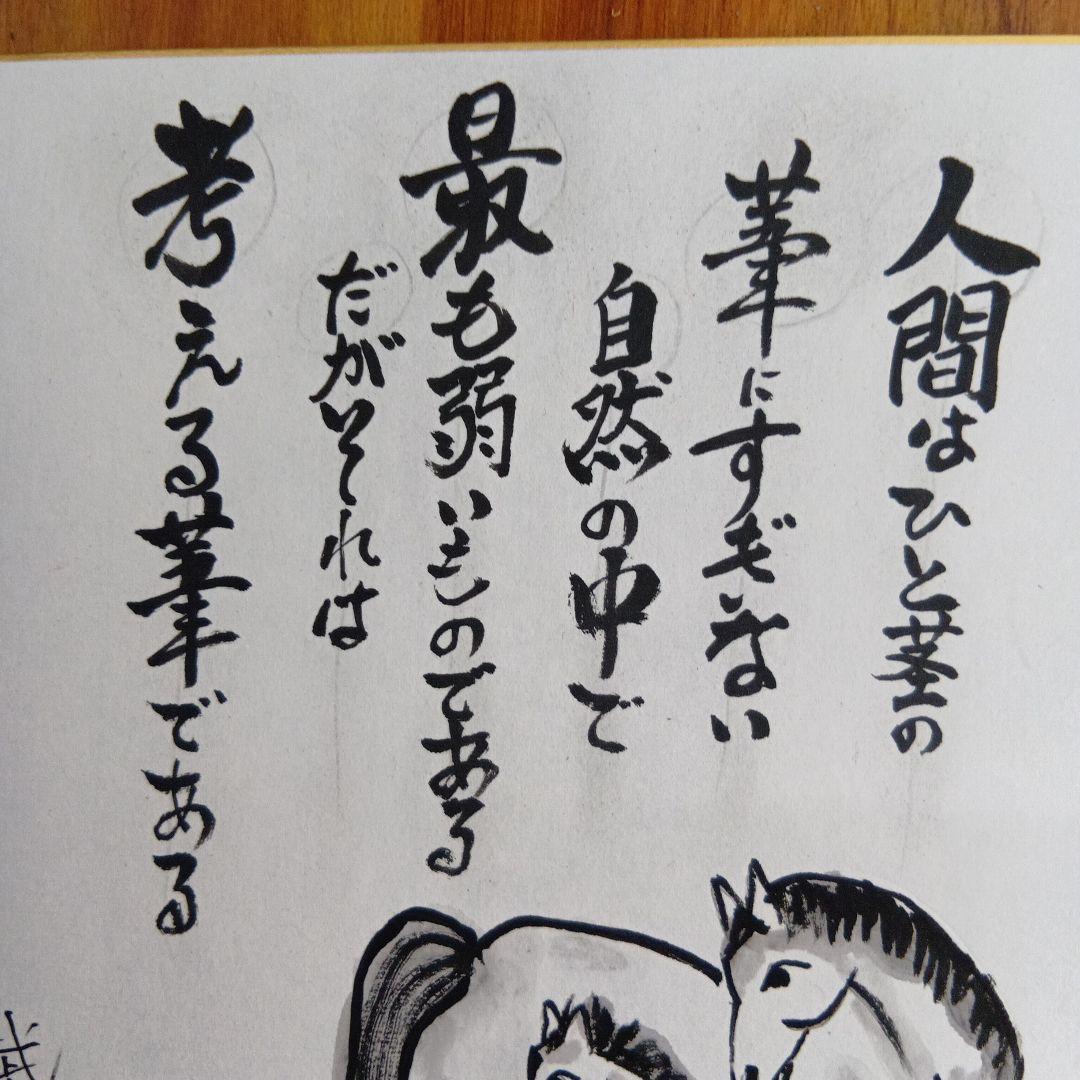 人間はひと茎の
葦にすぎない
自然の中で
最も弱いものである
だがそれは
考える葦である